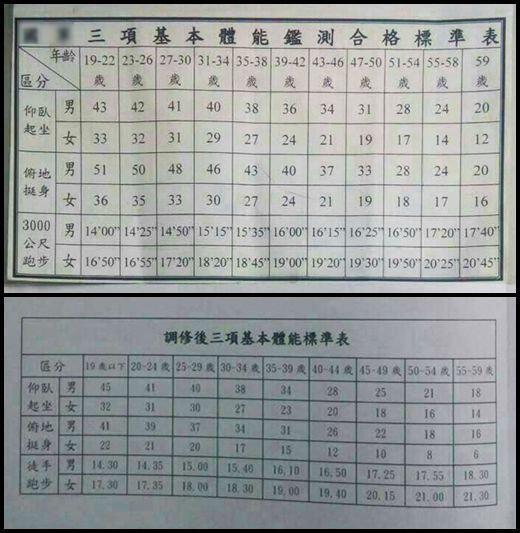 三項基本體能鑑測合格標準表
年齡 區分 19-22歲 23-26歲 27-30歲 31-34歲 35-38歲 39-42歲 43-46歲 47-50歲 51-54歲 55-58歲 59歲
仰臥起坐 男 43 42 41 40 38 36 34 31 28 24 20
女 33 32 31 29 27 24 21 19 17 14 12
俯地挺身 男 51 50 48 46 43 40 37 33 28 24 20
女 36 35 33 30 27 24 21 19 18 17 16
3000公尺跑步 男 14’00” 14’25” 14’50” 15’15” 15’35” 16’00” 16’15” 16’25” 16’50” 17’20” 17’40”
女 16’50” 16’55” 17’20” 18’20” 18’45” 19’00” 19’20” 19’30” 19’50” 20’25” 20’45”
調修後三項基本體能標準表
區分 19歲以下 20-24歲 25-29歲 30-34歲 35-39歲 40-44歲 45-49歲 50-54歲 55-59歲
仰臥起坐 男 45 41 40 38 34 28 25 21 18
女 32 31 30 27 23 20 18 16 14
俯地挺身 男 41 39 37 34 31 26 22 18 16
女 22 21 20 17 15 12 10 8 6
徒手跑步 男 14.30 14.35 15.00 15.40 16.10 16.50 17.25 17.55 18.30
女 17.30 17.35 18.00 18.30 19.00 19.40 20.15 21.00 21.30